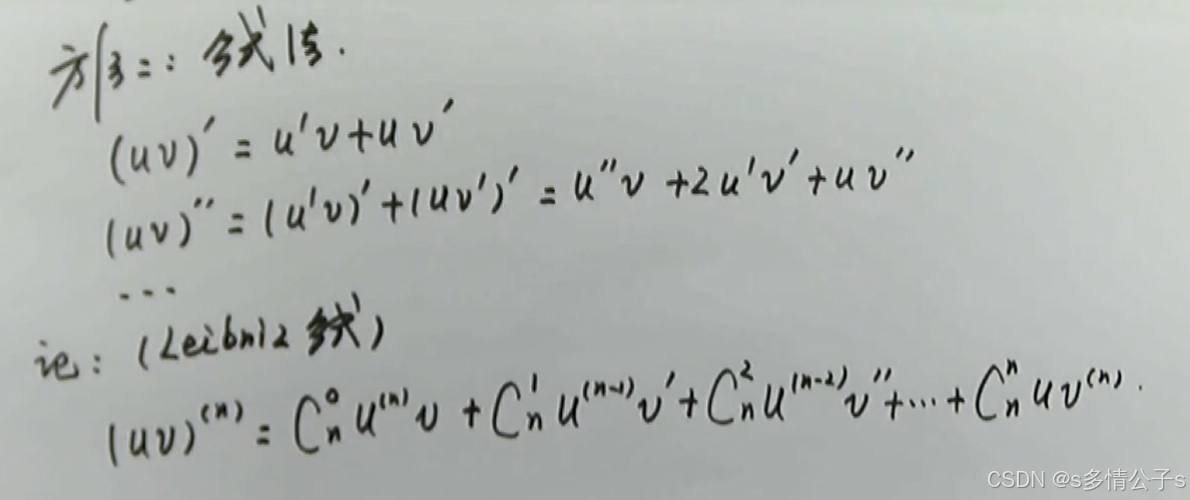 方法二: 公式法.
(uv)' = u'v + uv'
(uv)'' = (u'v)' + (uv')' = u''v + 2u'v' + uv''
...
记: (Leibniz公式)
(uv)⁽ⁿ⁾ = Cₙ⁰u⁽ⁿ⁾v + Cₙ¹u⁽ⁿ⁻¹⁾v' + Cₙ²u⁽ⁿ⁻²⁾v'' + ... + Cₙⁿuv⁽ⁿ⁾.
CSDN @s多情公子s